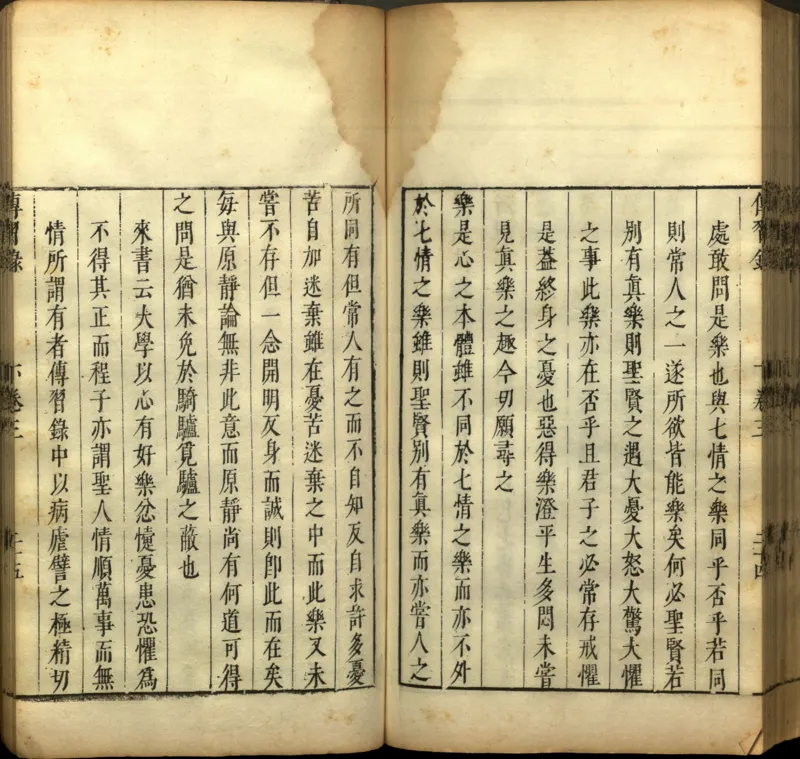 傳習錄
下卷三
二十四
處敢問是樂也與七情之樂同乎否乎若同
則常人之一遂所欲皆能樂矣何必聖賢若
別有真樂則聖賢之遇大憂大怒大驚大懼
之事此樂亦在否乎且君子之心常存戒懼
是蓋終身之憂也惡得樂澄平生多悶未嘗
見真樂之趣今切願尋之
樂是心之本體雖不同於七情之樂而亦不外
於七情之樂雖則聖賢別有真樂而亦嘗人之
所同有但常人有之而不自知反自求許多憂
苦自加迷棄雖在憂苦迷棄之中而此樂又未
嘗不存但一念開明反身而誠則即此而在矣
每與原靜論無非此意而原靜尚有何道可得
之問是猶未免於騎驢覓驢之蔽也
來書云大學以心有好樂忿懥憂患恐懼為
不得其正而程子亦謂聖人情順萬事而無
情所謂有者傳習錄中以病瘧譬之極精切
傳習錄
下卷三
二十五